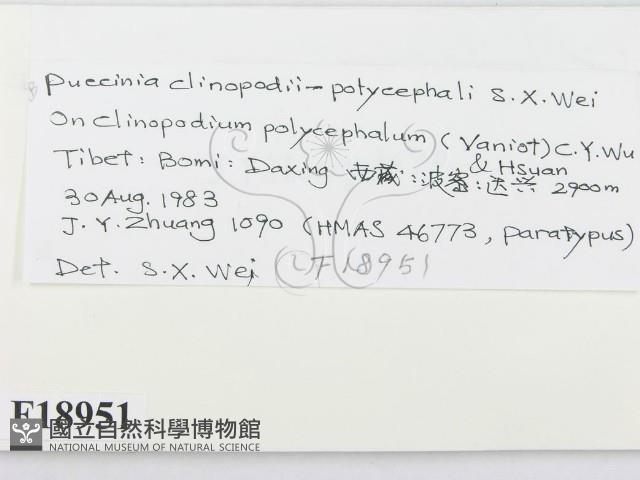 Puccinia clinopodii-polycephali S.X.Wei
On clinopodium polycephalum (Vaniot) C.Y.Wu & Hsuan
Tibet: Bomi: Daxing 西藏:波密:达兴 2900m
30 Aug. 1983
J.Y.Zhuang 1090 (HMAS 46773, paratypus)
Det. S.X.Wei F18951
F18951
國立自然科學博物館
NATIONAL MUSEUM OF NATURAL SCIENCE